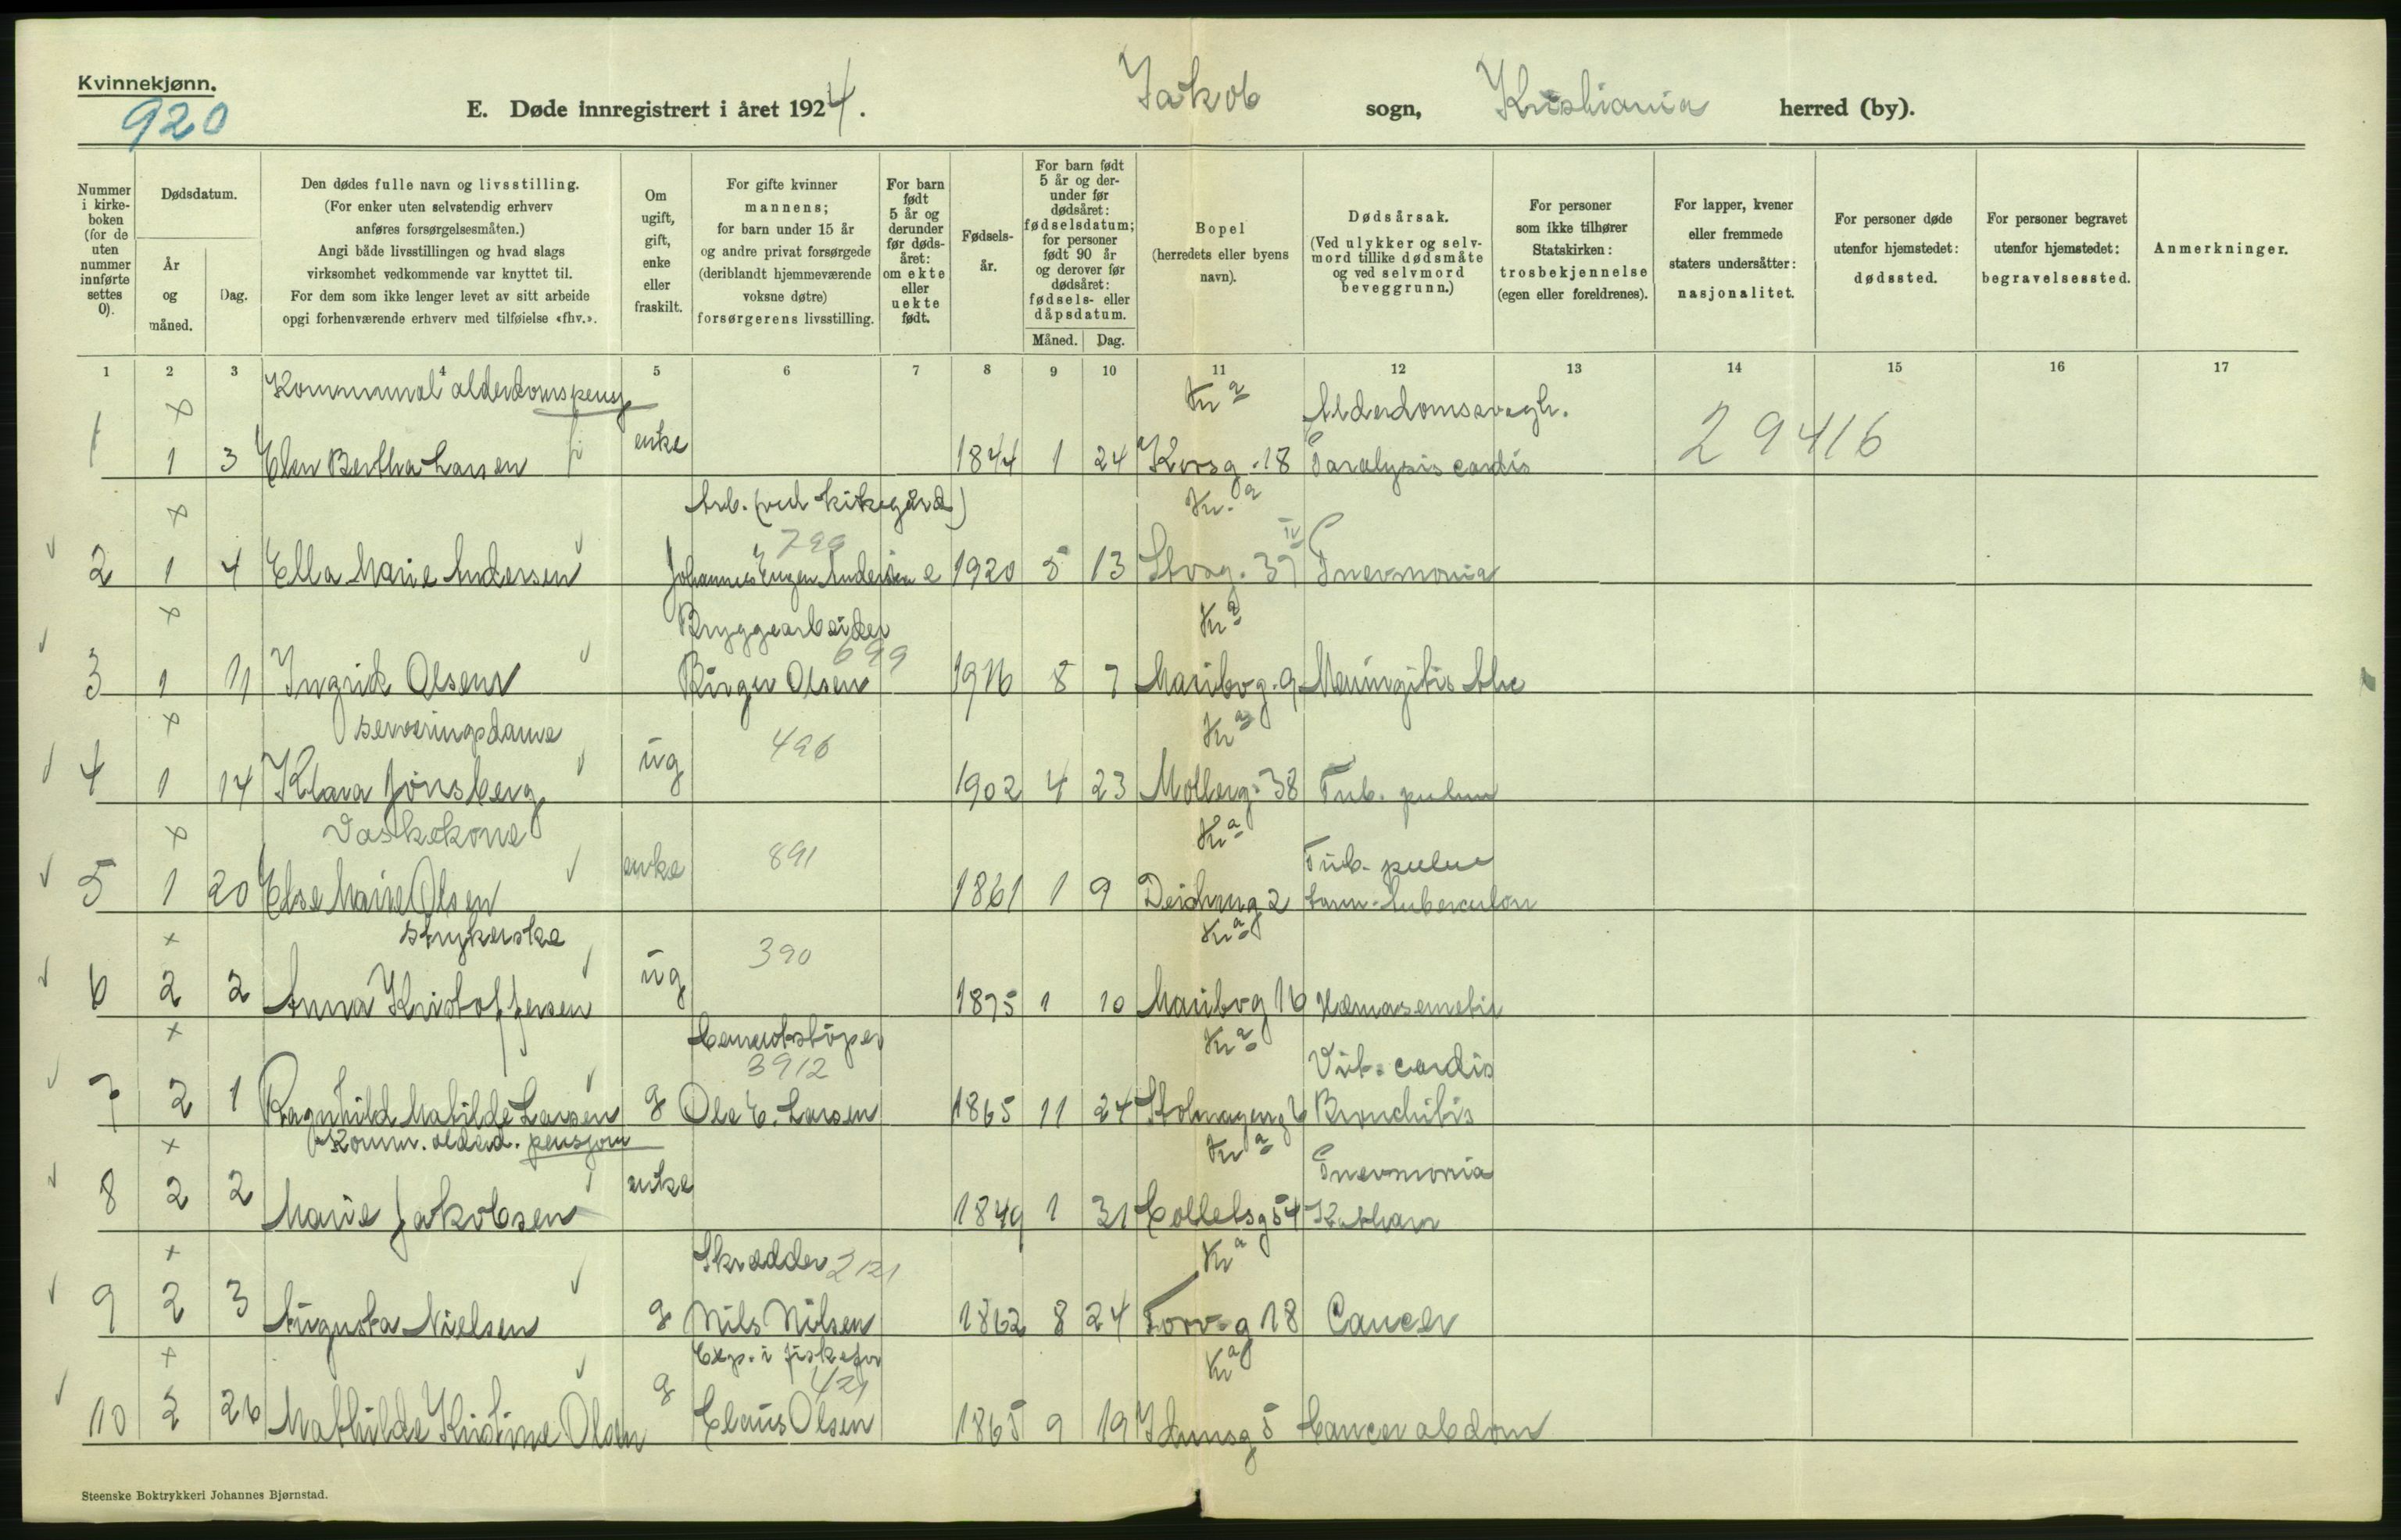 Kvinnekjønn.
920
E. Døde innregistrert i året 1924.
Jakob sogn, Kristiania herred (by).
Nummer i kirkeboken (for de uten nummer innførte settes 0).
Dødsdatum.
År og måned.
Dag.
Den dødes fulle navn og livsstilling.
(For enker uten selvstendig erhverv
anføres forsørgelsesmåten.)
Angi både livsstillingen og hvad slags
virksomhet vedkommende var knyttet til.
For dem som ikke lenger levet av sitt arbeide
opgi forhenværende erhverv med tilføielse «fhv.».
Om ugift, gift, enke eller fraskilt.
For gifte kvinner
mannens;
for barn under 15 år
og andre privat forsørgede
(deriblandt hjemmeværende
voksne døtre)
forsørgerens livsstilling.
For barn født 5 år og derunder før dødsåret: om ekte eller uekte født.
Fødselsår.
For barn født 5 år og derunder før dødsåret: fødselsdatum; for personer født 90 år og derover før dødsåret: fødsels- eller dåpsdatum.
Måned. Dag.
Bopel
(herredets eller byens
navn).
Dødsårsak.
(Ved ulykker og selvmord tillike dødsmåte og ved selvmord beveggrunn.)
For personer
som ikke tilhører
Statskirken:
trosbekjennelse
(egen eller foreldrenes).
For lapper, kvener
eller fremmede
staters undersåtter:
nasjonalitet.
For personer døde
utenfor hjemstedet:
dødssted.
For personer begravet
utenfor hjemstedet:
begravelsessted.
Anmerkninger.
1 2 3 4 5 6 7 8 9 10 11 12 13 14 15 16 17
x Kommunal alderdomspensj Kr a Alderdomssvagh.
1 1 3 Elen Bertha Larsen enke 1844 1 24 Korsg. 18 Paralysis cordis 29416
x Arb. (ved kirkegård) Kr. a
799
2 1 4 Ella Marie Andersen Johannes Eugen Andersen e 1920 5 13 Storg. 37 IV Pnevmonia
x Bryggearbeider Kr a
699
3 1 11 Ingrid Olsen Birger Olsen 1916 8 7 Maribog. 9 Meningitis tbc
x serveringsdame Kr a
496
4 1 14 Klara Jonsberg ug 1902 4 23 Møllerg. 38 Tub. pulm
x Vaskekone Kr a
891 Tub. pulm
5 1 20 Else Marie Olsen enke 1861 1 9 Deichmg 2
x strykerske Kr a
390
6 2 2 Anna Kristoffersen ug 1875 1 10 Maribog 16
x Cementstøper Kr a
3912 Vit. cordis
7 2 1 Ragnhild Matilde Larsen g Ole E. Larsen 1865 11 24 Bronchitis
x Komm. alderd. pensjon Kr a
Pnevmonia
8 2 2 Marie Jakobsen enke 1849 1 31 Colletsg 54
x Skredder 2121 Kr a
9 2 3 Augusta Nielsen g Nils Nilsen 1862 8 24 Torvg 18 Cancer
x Exp. i Kr a
421
10 2 26 Mathilde Kristine Olsen g Claus Olsen 1865 9 19 Idunsg 5 Cancer abdom
Steenske Boktrykkeri Johannes Bjørnstad.